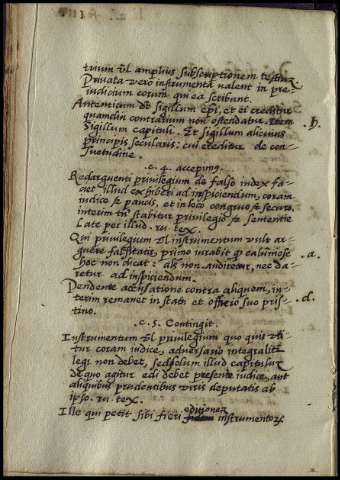 trium vl amplius subscriptionem testiũ.
Privata vero instrumenta valent in pre
iudicium eorum qui ea scribunt.
Autenticum dr sigillum epi, et ei creditur
quamdiu contrarium non ostendatur. Item
Sigillum capituli. Et sigillum alicuius
principis secularis: cui creditur de con-
suetudine.
b.
c. 4. accepimꝰ.
Redarguenti privilegium de falso iudex fa-
ciet illud exhiberi ad inspiciendum, coram
iudice & paucis, et in loco congruo & securo
interim tñ stabitur privilegio & sententie
late per illud. ru. tex.
Qui privilegium vl instrumentum vult ar-
guere falsitatis, primo iurabit ꝙ calumniose
hoc non dicat: als non audiretur, nec da-
retur ad inspiciendum.
a.
Pendente accusatione contra aliquem, in-
terim remanet in statu et officio suo pris-
tino.
d.
c. 5. Contingit.
Instrumentum vl privilegium quo quis uti-
tur coram iudice, adversario integraliter
legi non debet, sed solum illud capitulum
de quo agitur edi debet presente iudice, aut
aliquibus prudentibus viris deputatis ab
ipso. ru. tex.
Ille qui petit sibi fieri editionem instrumentorũ